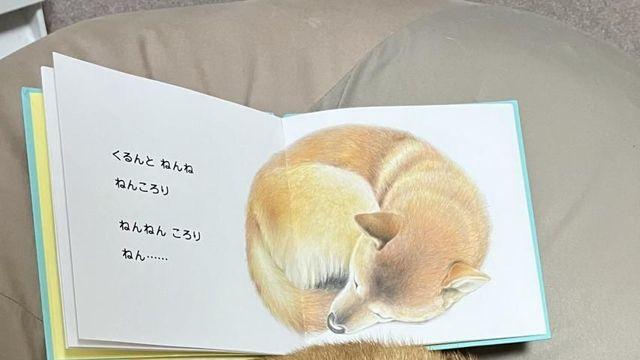 くるんと ねんね
ねんころり
ねんねん ころり
ねん……